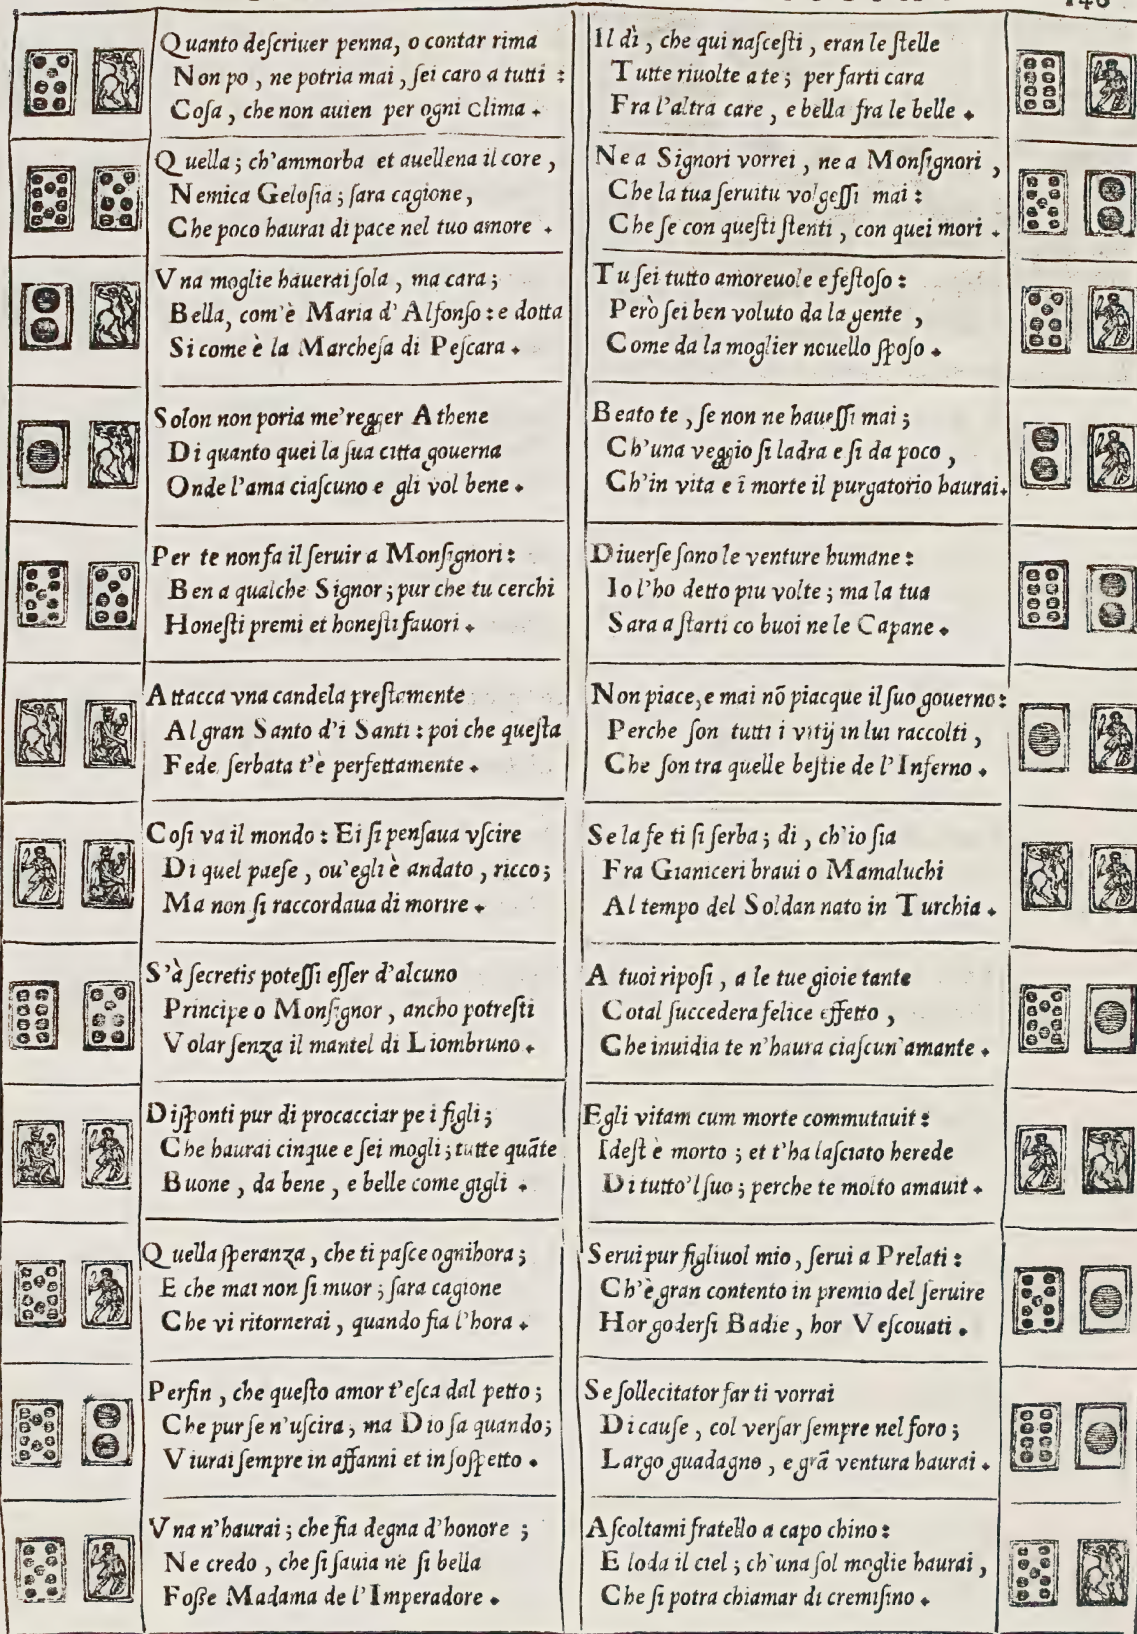 148
Quanto deſcriuer penna, o contar rima
Non po, ne potria mai, ſei caro a tutti:
Coſa, che non auien per ogni Clima.
Quella; ch'ammorba et auellena il core,
Nemica Geloſia; ſara cagione,
Che poco haurai di pace nel tuo amore.
Vna moglie hauerai ſola, ma cara;
Bella, com'è Maria d'Alfonſo: e dotta
Si come è la Marcheſa di Peſcara.
Solon non poria me' regger Athene
Di quanto quei la ſua citta gouerna
Onde l'ama ciaſcuno e gli vol bene.
Per te non fa il ſeruir a Monſignori:
Ben a qualche Signor; pur che tu cerchi
Honeſti premi et honeſti fauori.
Attacca vna candela preſtamente
Al gran Santo d'i Santi: poi che queſta
Fede ſerbata t'è perfettamente.
Coſi va il mondo: Ei ſi penſaua vſcire
Di quel paeſe, ou'egli è andato, ricco;
Ma non ſi raccordaua di morire.
S'à ſecretis poteſſi eſſer d'alcuno
Principe o Monſignor, ancho potreſti
Volar ſenza il mantel di Liombruno.
Diſponti pur di procacciar pe i figli;
Che haurai cinque e ſei mogli; tutte quāte
Buone, da bene, e belle come gigli.
Quella ſperanza, che ti paſce ognihora;
E che mai non ſi muor; ſara cagione
Che vi ritornerai, quando fia l'hora.
Perfin, che queſto amor t'eſca dal petto;
Che pur ſe n'uſcira, ma Dio ſa quando;
Viurai ſempre in affanni et in ſoſpetto.
Vna n'haurai; che fia degna d'honore;
Ne credo, che ſi ſauia ne ſi bella
Foſſe Madama de l'Imperadore.
Il dì, che qui naſceſti, eran le ſtelle
Tutte riuolte a te; per farti cara
Fra l'altra care, e bella fra le belle.
Ne a Signori vorrei, ne a Monſignori,
Che la tua ſeruitu volgeſſi mai:
Che ſe con queſti ſtenti, con quei mori.
Tu ſei tutto amoreuole e feſtoſo:
Però ſei ben voluto da la gente,
Come da la moglier nouello ſpoſo.
Beato te, ſe non ne haueſſi mai;
Ch'una veggio ſi ladra e ſi da poco,
Ch'in vita e ī morte il purgatorio haurai.
Diuerſe ſono le venture humane:
Io l'ho detto piu volte; ma la tua
Sara a ſtarti co buoi ne le Capane.
Non piace, e mai nō piacque il ſuo gouerno:
Perche ſon tutti i vitij in lui raccolti,
Che ſon tra quelle beſtie de l'Inferno.
Se la fe ti ſi ſerba; di, ch'io ſia
Fra Gianiceri braui o Mamaluchi
Al tempo del Soldan nato in Turchia.
A tuoi ripoſi, a le tue gioie tante
Cotal ſuccedera felice effetto,
Che inuidia te n'haura ciaſcun'amante.
Egli vitam cum morte commutauit:
Ideſt è morto; et t'ha laſciato herede
Di tutto'l ſuo; perche te molto amauit.
Serui pur figliuol mio, ſerui a Prelati:
Ch'è gran contento in premio del ſeruire
Hor goderſi Badie, hor Veſcouati.
Se ſollecitator far ti vorrai
Di cauſe, col verſar ſempre nel foro;
Largo guadagno, e grā ventura haurai.
Aſcoltami fratello a capo chino:
E loda il ciel; ch'una ſol moglie haurai,
Che ſi potra chiamar di cremiſino.